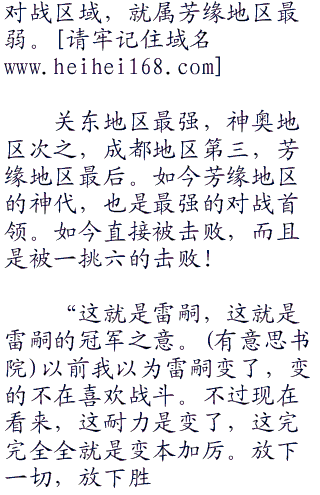 对战区域，就属芳缘地区最
弱。[请牢记住域名
www.heihei168.com]
关东地区最强，神奥地
区次之，成都地区第三，芳
缘地区最后。如今芳缘地区
的神代，也是最强的对战首
领。如今直接被击败，而且
是被一挑六的击败！
“这就是雷嗣，这就是
雷嗣的冠军之意。(有意思书
院)以前我以为雷嗣变了，变
的不在喜欢战斗。不过现在
看来，这耐力是变了，这完
完全全就是变本加厉。放下
一切，放下胜